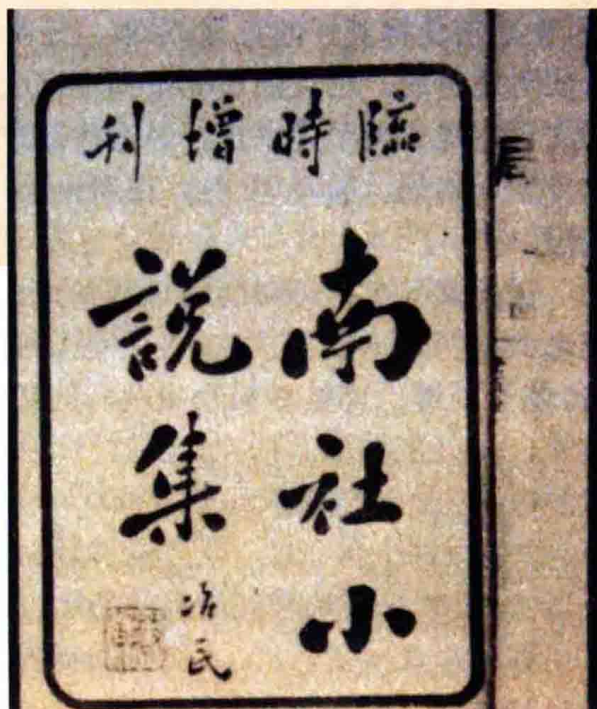 臨時增刊
南社小
說集
冶民